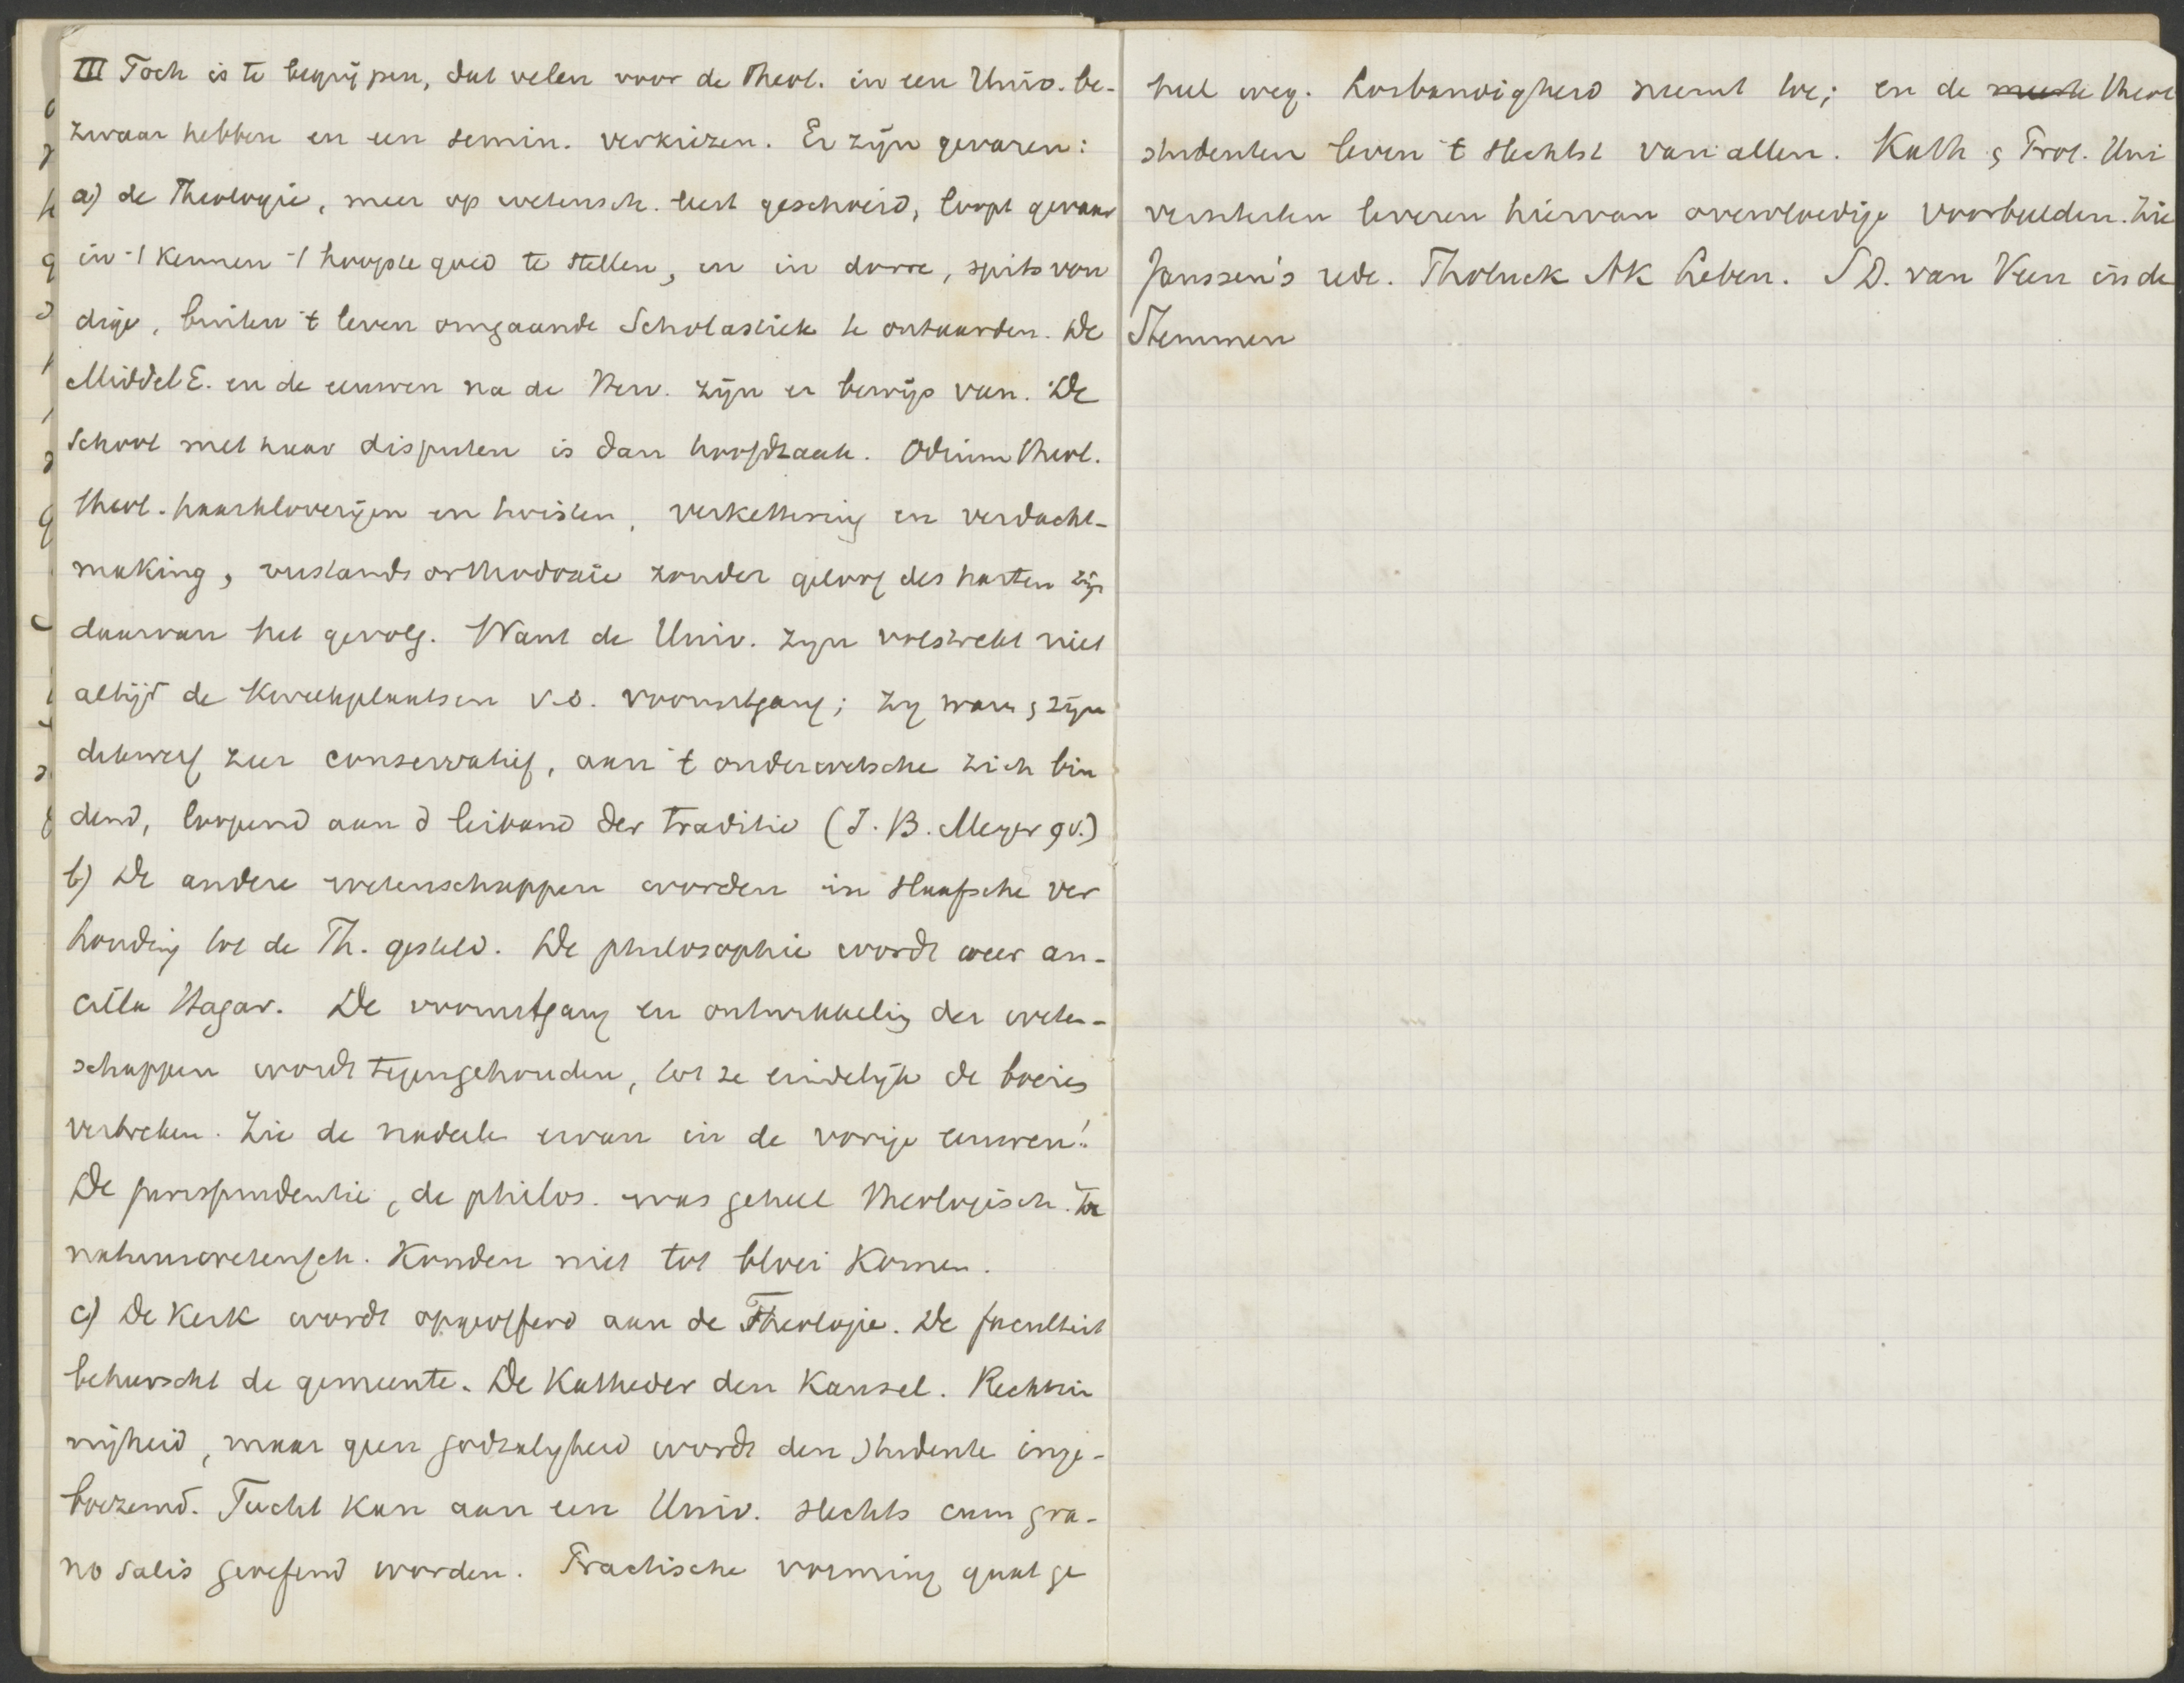 III Toch is te begrijpen, dat velen voor de Theol. in een Univ. be-
zwaar hebben en een semin. verkiezen. Er zijn gevaren:
a) de Theologie, meer op wetensch. leest geschoeid, loopt gevaar
in 't kennen 't hoogste goed te stellen, en in dorre, spitsvon
dige, buiten 't leven omgaande Scholastiek te ontaarden. De
Middel E. en de eeuwen na de Herv. zijn er bewijs van. De
School met haar disputen is dan hoofdzaak. Odium theol.
theol. haarkloverijen en twisten, verkettering en verdacht-
making, verstands orthodoxie zonder geloof des harten zijn
daarvan het gevolg. Want de Univ. zijn volstrekt niet
altijd de Kweekplaatsen v.d. vooruitgang; zij waren & zijn
dikwerf zeer conservatief, aan 't ouderwetsche zich bin
dend, loopend aan d leiband der traditie (J. B. Meyer gv.)
b) De andere wetenschappen worden in slaafsche ver
houding tot de Th. gesteld. De philosophie wordt weer an-
cilla Hagar. De vooruitgang en ontwikkeling der weten-
schappen wordt tegengehouden, tot ze eindelijk de boeies
verbreken. Zie de nadeele ervan in de vorige eeuwen!
De jurisprudentie, de philos. was geheel theologisch. De
natuurwetensch. Konden niet tot bloei Komen.
c) De Kerk wordt opgeofferd aan de Theologie. De faculteit
beheerscht de gemeente. De Katheder den Kansel. Rechtzin
nigheid, maar geen godzaligheid wordt den Studente inge-
boezemd. Tucht kan aan een Univ. slechts cum gra-
no salis geoefend worden. Practische vorming gaat ge
heel weg. Losbandigheid neemt toe; en de meeste theol
studenten leven 't slechtst van allen. Kath & Prot. Uni
versiteiten leveren hiervan overvloedige voorbeelden. Zie
Janssen's rede. Tholuck AK Leben. S D. van Veen in de
Stemmen